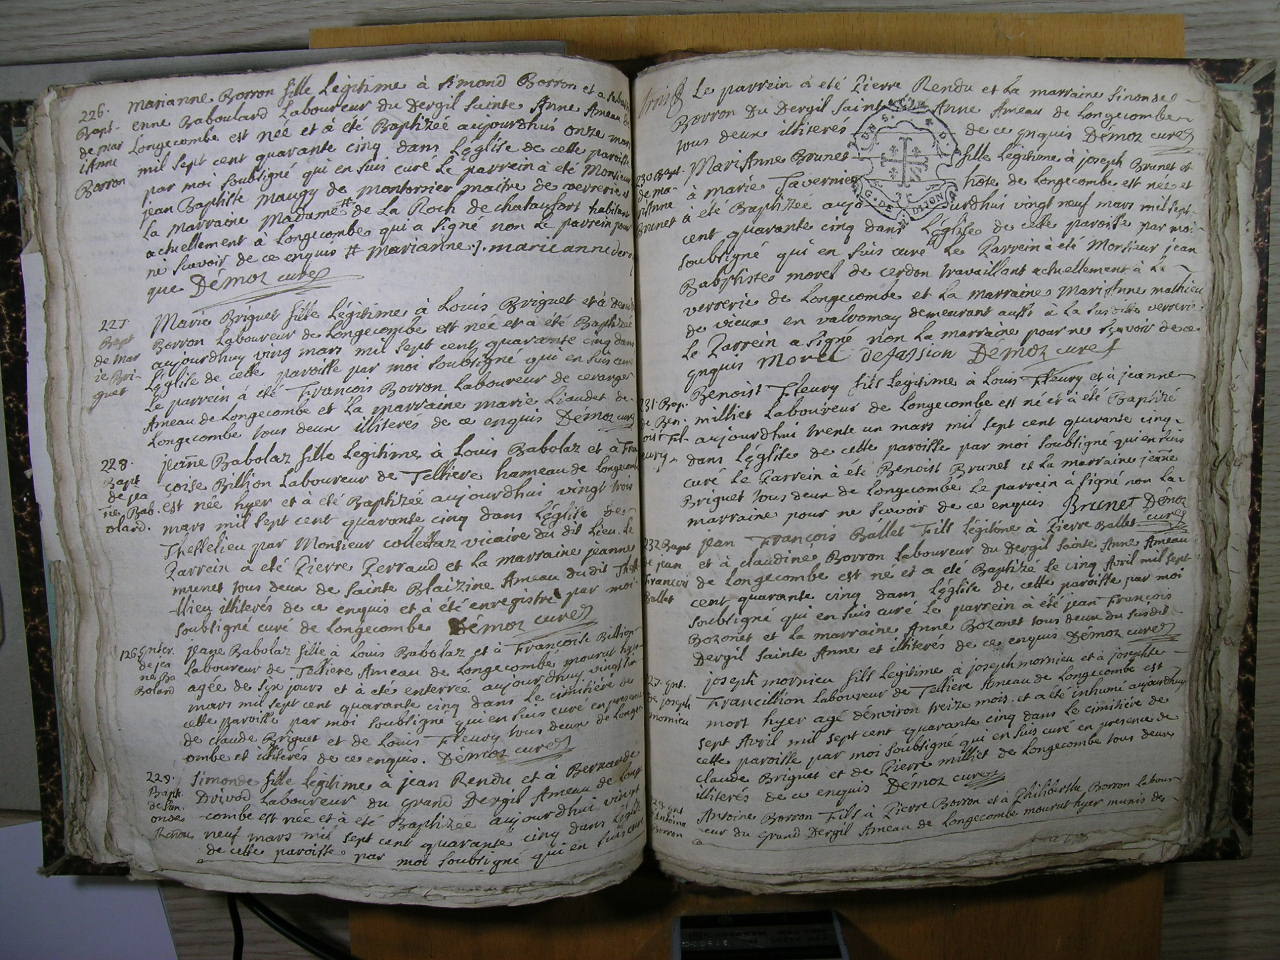 226.
Bapt-
de mar
ianne
Borron
marianne Borron fille Legitime à simond Borron et a
enne Baboulard Laboureur du Dergil Sainte Anne Ameau de
Longecombe est née et à été Baptizée aujourdhui onze mars
mil sept cent quarante cinq dans L'église de cette paroisse
par moi soubsigné qui en suis curé Le parrein à été Monsieur
jean Baptiste maugy de montornier maitre de verrerie et
La marraine Madame # de La Roch de chataufort habitant
actuellement à Longecombe qui a signé non le parrein pour
ne scavoir de ce enquis # marianne ./. marie anne
que Démoz curé
227.
Bapt
de mar
ie Bri-
guet
Marie Briguet fille Légitime à Louis Briguet et à
Borron Laboureur de Longecombe est née et a été Baptizée
aujourdhuy ving mars mil sept cent quarante cinq dans
L'église de cette paroisse par moi soubsigné qui en suis curé
Le parrein à été François Borron Laboureur de
Ameau de Longecombe et La marraine marie Liaudet de
Longecombe tous deux illiterés de ce enquis Démoz curé
228.
Bapt
de jea
ne Bab-
olard.
jeanne Babolaz fille Legitime à Louis Babolaz et à Fran
coise Billion Laboureur de Tellière hameau de Longecombe
est née hyer et à été Baptizée aujourdhui vingt trois
mars mil sept cent quarante cinq dans L'église de
Thesselieu par Monsieur colletaz vicaire du dit Lieu. Le
Parrein a été Pierre Perraud et La marraine jeanne
munet tous deux de Sainte Blaizine Ameau du dit Thesse
llieu illiterés de ce enquis et à été enregistré par moi
soubsigné curé de Longecombe Démoz curé
126 Enter.
de jea
ne Ba
Bolard
jeane Babolaz fille à Louis Babolaz et à Francoise Billion
Laboureur de Tellière Ameau de Longecombe mourut hyer
agée de six jours et à été enterrée aujourdhuy vingt
mars mil sept cent quarante cinq dans Le cimitière de
cette paroisse par moi soubsigné qui en suis curé en presence
de claude Briguet et de Louis Fleury tous deux de Longec
ombe et illiterés de ce enquis. Démoz curé
229.
Bapt.
de sim
onde
Rendu
Simonde fille legitime à jean Rendu et à Bernarde
Drivod Laboureur du grand Dergil Ameau de Longe
combe est née et à été Baptizée aujourdhui vingt
neuf mars mil sept cent quarante cinq dans L'église
de cette paroisse par moi soubsigné qui en suis curé
Le parrain à été Pierre Rendu et La marraine Simonde
Borron Du Dergil sainte Anne Ameau de Longecombe
tous deux illiterés de ce enquis Démoz curé
230 Bapt.
de ma-
rianne
Brunet
MariAnne Brunet fille Légitime à joseph Brunet et
à marie Tavernier hôte de Longecombe est née et
à été Baptizée aujourdhui vingt neuf mars mil sept
cent quarante cinq dans L'église de cette paroisse par moi
soubsigné qui en suis curé Le Parrein à été Monsieur jean
Babptiste morel de cerdon travaillant actuellement à La
verrerie de Longecombe et La marraine MariAnne mathieu
de vieux en valromay demeurant aussi à La susdite verrerie
Le Parrein a signé non La marraine pour ne scavoir de ce
enquis Morel Démoz curé
231 Bap.
de Ben
oist Fl-
eury
Benoist Fleury fils Legitime à Louis Fleury et à jeanne
milliet Laboureur de Longecombe est né et à été Baptizé
aujourdhui trente un mars mil sept cent quarante cinq
dans L'église de cette paroisse par moi soubsigné qui en suis
curé Le Parrein à été Benoist Brunet et La marraine jeane
Briguet tous deux de Longecombe Le parrein à signé non La
marraine pour ne scavoir de ce enquis Brunet Démoz
curé
232 Bapt
de jean
Francoi
Ballet
jean François Ballet Fils Légitime à Pierre Ballet
et à claudine Borron Laboureur du Dergil Sainte Anne Ameau
de Longecombe est né et a été Baptizé Le cinq Avril mil sept
cent quarante cinq dans L'église de cette paroisse par moi
soubsigné qui en suis curé Le parrein à été jean François
Bozonet et La marraine Anne Bozonet tous deux du susdit
Dergil Sainte Anne et illiterés de ce enquis Démoz curé
127. ent.
de joseph
mornieu
joseph mornieu fils Legitime à joseph mornieu et à josephte
Francillion Laboureur de Tellière Ameau de Longecombe est
mort hyer agé denviron treize mois et a été inhumé aujourdhuy
sept Avril mil sept cent quarante cinq dans Le cimitière de
cette paroisse par moi soubsigné qui en suis curé en presence de
claude Briguet et de Pierre milliet de Longecombe tous deux
illiterés de ce enquis Démoz curé
128. ent
Antoine
Borron
Antoine Borron Fils à Pierre Borron et à Philiberthe Borron Labour-
eur du Grand Dergil Ameau de Longecombe mourut hyer munis de